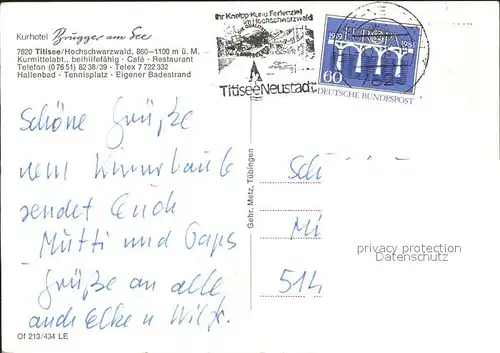 Kurhotel Brugger am See
7820 Titisee/Hochschwarzwald, 860–1100 m ü. M.
Kurmittelabt., beihilfefähig · Café · Restaurant
Telefon (0 76 51) 82 38 /39 · Telex 7 722 332
Hallenbad · Tennisplatz · Eigener Badestrand
Ihr Kneipp-Kur u Ferienziel
im Hochschwarzwald
TitiseeNeustadt
EUROPA
60
DEUTSCHE BUNDESPOST
Schöne Grüße
sendet Euch
Mutti und
Grüße an alle
auch Elke u
Gebr. Metz, Tübingen
Mi
514
privacy protection
Datenschutz
Of 213/434 LE